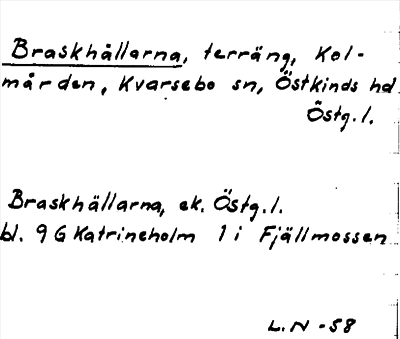 Braskhållarna, terräng, Kol-
mården, Kvarsebo sn, Östkinds hd
Östg.l.
Braskhällarna, ek. Östg.l.
bl. 9 G Katrineholm 1 i Fjällmossen
L.N -58